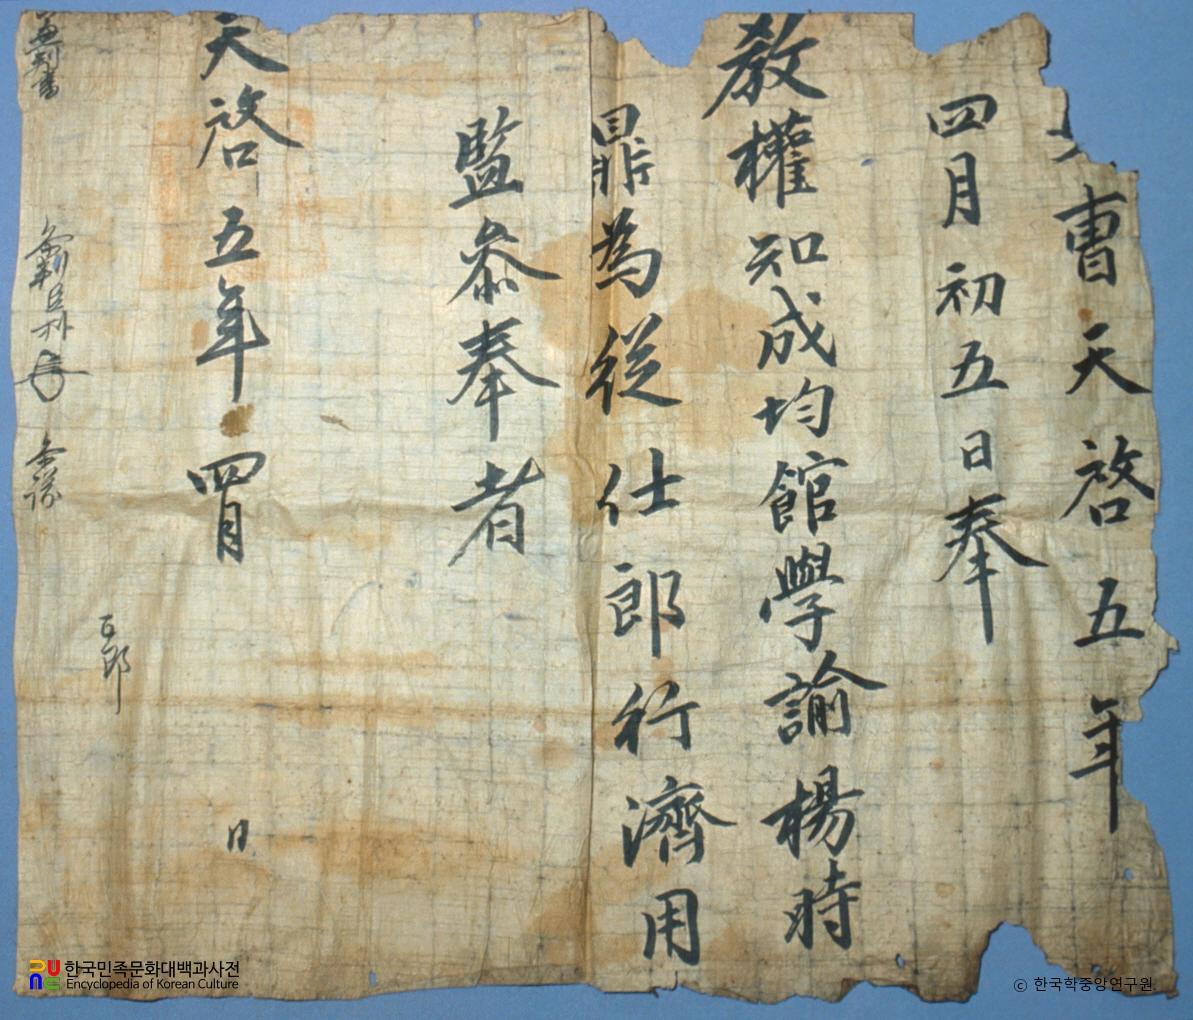 曹天啓五年
四月初五日奉
教權知成均館學諭楊時
鼎為從仕郎行濟用
監叅奉者
天啓五年四月 日
正郎
判書 參判臣朴 參議
한국민족문화대백과사전
Encyclopedia of Korean Culture
© 한국학중앙연구원